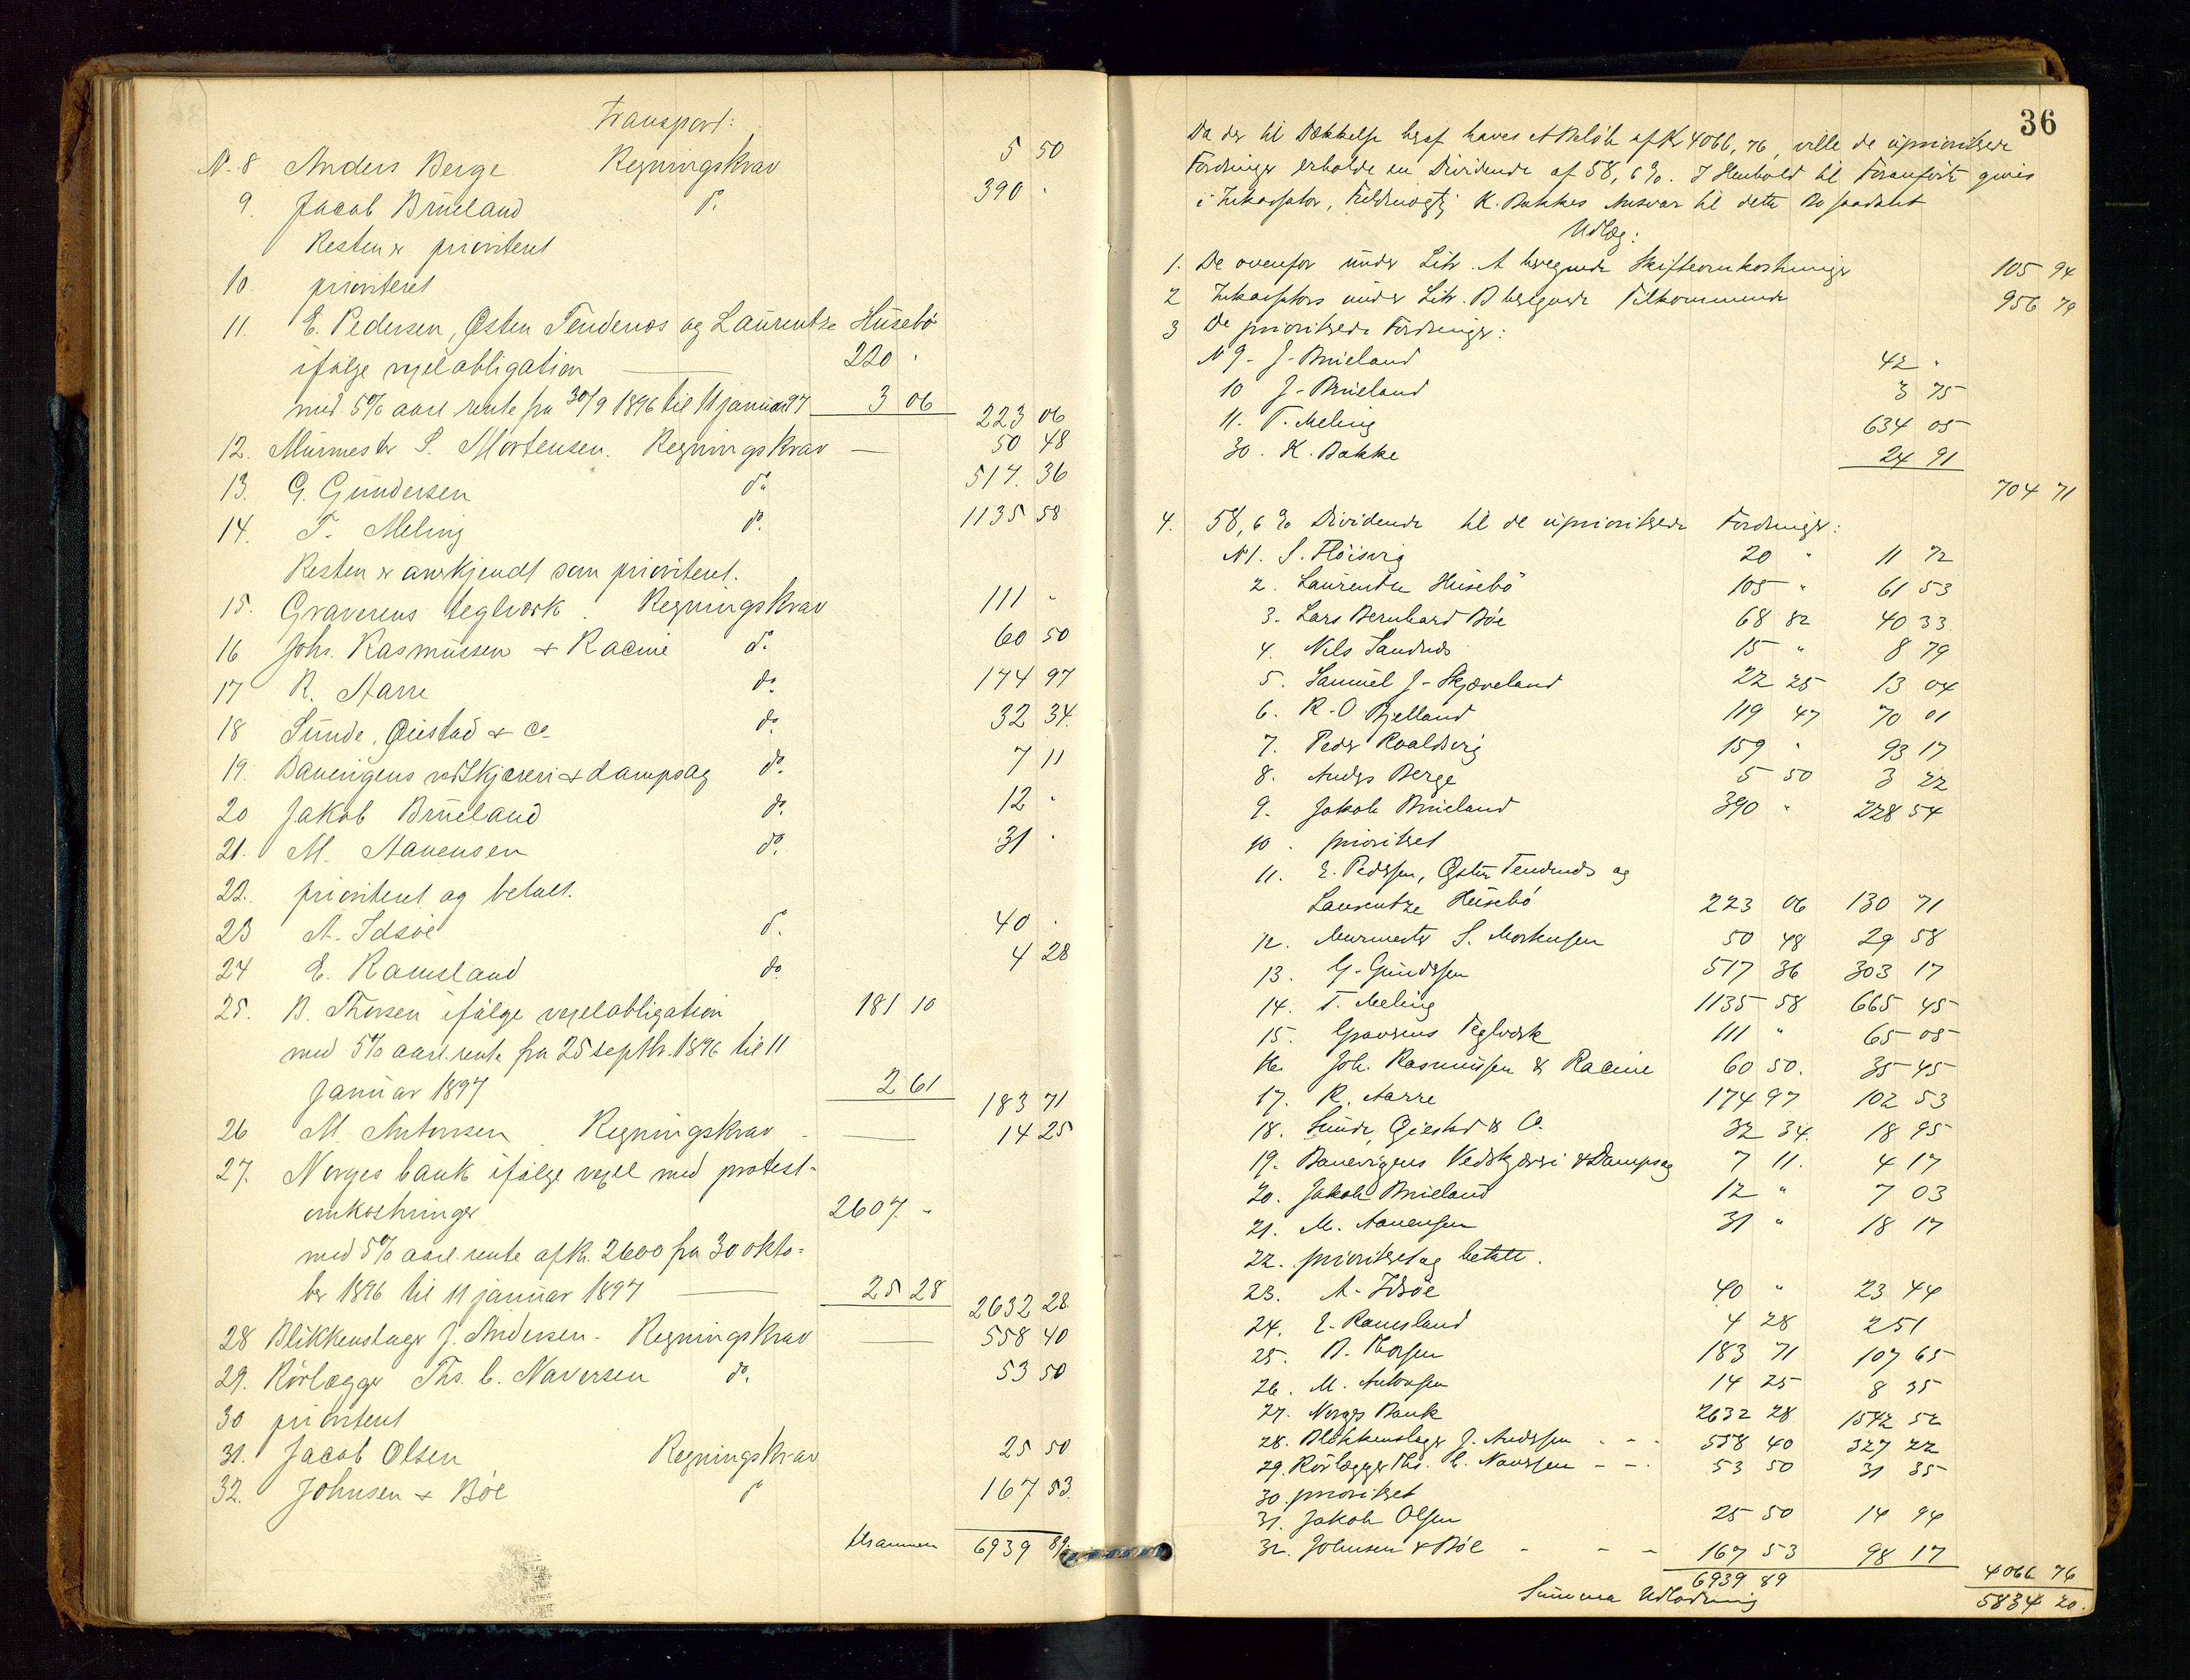 Transport:
N. 8 Anders Berge Regningskrav 5 50
9. Jacob Brüeland do. 390 "
Resten er prioriteret
10. prioriteret
11. E. Pedersen, Østen Tendenæs og Laurentze Husebö
ifølge vexelobligation 220 "
med 5% aarl. rente fra 30/9 1896 til 11 januar 97 3 06 223 06
12. Murmester S. Mortensen. Regningskrav 50 48
13. G. Gundersen do. 517. 36
14. T. Meling do. 1135 58
Resten er anerkjendt som prioriteret.
15. Graverens teglværk. Regningskrav 111 "
16 Johs. Rasmussen & Racine do. 60 50
17 R. Aarre do. 174 97
18 Sunde, Giestad & Co do. 32 34.
19. Banevigens vedskjæreri & dampsag do. 7 11
20 Jakob Brüeland do. 12 "
21. M. Aanensen do. 31 "
22. prioriteret og betalt.
23 A. Idsöe do. 40 "
24 E. Ramsland do. 4 28
25. B. Thorsen ifølge vexelobligation 181 10
med 5% aarl. rente fra 25 septbr. 1896 til 11
januar 1897 2 61 183 71
26 M. Antonsen Regningskrav 14 25
27. Norges bank ifølge vexel med protest-
omkostninger 2607. "
med 5% aarl. rente af Kr. 2600 fra 30 okto-
ber 1896 til 11 januar 1897 25 28 2632 28
28 Blikkenslager J. Andersen. Regningskrav 558 40
29. Rörlægger Ths. C. Naversen do. 53 50
30 prioriteret
31. Jacob Olsen Regningskrav 25 50
32. Johnsen & Böe do 167 53.
tilsammen 6939 89
36
Da der til Dækkelse heraf haves et Beløb af Kr 4066,76, ville de uprioriterede
Fordringer erholde en Dividende af 58,6%. I Henhold til Foranførte gives
i Inkassator, Fuldmægtig K. Bakkes Ansvar til dette Bo saadant
Udlæg:
1. De ovenfor under Litr. A beregnede Skifteomkostninger 105 94
2 Inkassators under Litr. B beregnede Tilkommende 956 79
3 De prioriterede Fordringer:
N 9. J. Brüeland 42 "
10 J. Brüeland 3 75
11. T. Meling 634 05
30. K. Bakke 24 91
704 71
4. 58,6% Dividende til de uprioriterede Fordringer:
N 1. S. Flöisvig 20 " 11 72
2. Laurentze Husebö 105 " 61 53
3. Lars Bernhard Böe 68 82 40 33
4. Nils Sandnes 15 " 8 79
5. Samuel J. Skjæveland 22 25 13 04
6. R. O. Bjelland 119 47 70 01
7. Peder Roaldsvig 159 " 93 17
8. Anders Berge 5 50 3 22
9. Jakob Brüeland 390 " 228 54
10. prioriteret
11. E. Pedersen, Østen Tendenæs og
Laurentze Husebö 223 06 130 71
12. Murmester S. Mortensen 50 48 29 58
13. G. Gundersen 517 36 303 17
14. T. Meling 1135 58 665 45
15. Graverens Teglværk 111 " 65 05
16. Joh. Rasmussen & Racine 60 50. 35 45
17. R. Aarre 174 97 102 53
18. Sunde, Giestad & Co. 32 34. 18 95
19. Banevigens Vedskjæreri & Dampsag 7 11. 4 17
20. Jakob Brüeland 12 " 7 03
21. M. Aanensen 31 " 18 17
22. prioriteret og betalt.
23. A. Idsöe 40 " 23 44
24. E. Ramsland 4 28 2 51
25. B. Thorsen 183 71 107 65
26. M. Antonsen 14 25 8 35
27. Norges Bank 2632 28 1542 52
28. Blikkenslager J. Andersen - - - 558 40 327 22
29. Rörlægger Ths. C. Naversen - - 53 50 31 35
30. prioriteret
31. Jakob Olsen 25 50 14 94
32. Johnsen & Böe - - - 167 53 98 17
6939 89 4066 76
Summa Udlodning 5834 20.